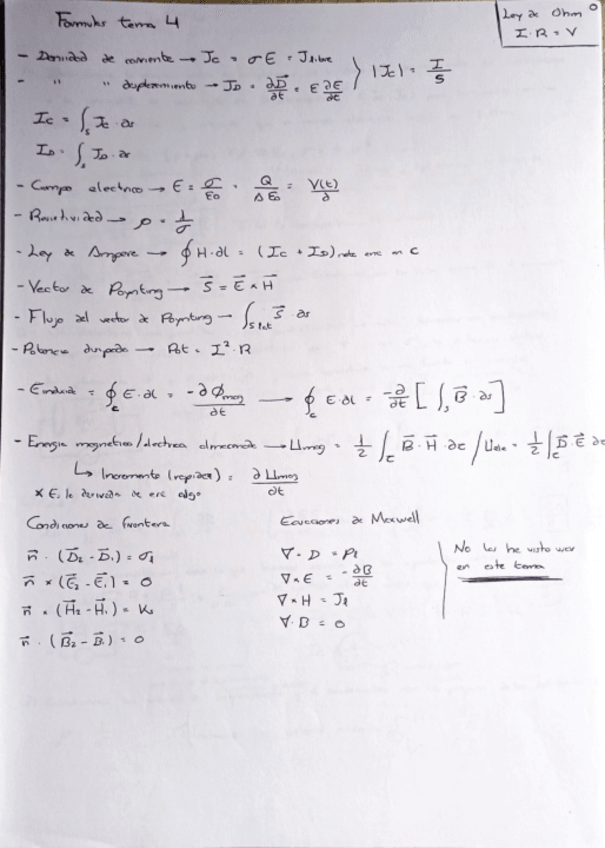 Formulas tema 4
Ley de Ohm
I · R = V
- Densidad de corriente → Jc = σE = Jlibre
- " " desplazamiento → JD = ∂D⃗/∂t = ε ∂E/∂t } |Jc| = I/S
Ic = ∫s Jc · ds
ID = ∫s JD · ds
- Campo electrico → E = σ/εo = Q/AEo = V(t)/d
- Resistividad → ρ = 1/σ
- Ley de Ampere → ∮ H·dl = (Ic + ID) en C
- Vector de Poynting → S⃗ = E⃗ × H⃗
- Flujo del vector de Poynting → ∫s tot S⃗ · ds
- Potencia disipada → Pot = I² · R
- Einducida = ∮c E·dl = -∂Φmag/∂t → ∮c E·dl = -∂/∂t [∫s B⃗ · ds]
- Energia magnetica/electrica almacenada → Umag = 1/2 ∫τ B⃗ · H⃗ · dτ / Uele = 1/2 ∫τ D⃗ · E⃗ dτ
↳ Incremento (rapidez) = ∂Umag/∂t
* Es la derivada de ese algo
Condiciones de frontera
n⃗ · (D⃗2 - D⃗1) = σf
n⃗ × (E⃗2 - E⃗1) = 0
n⃗ × (H⃗2 - H⃗1) = Ks
n⃗ · (B⃗2 - B⃗1) = 0
Ecuaciones de Maxwell
∇ · D = ρf
∇ × E = -∂B/∂t
∇ × H = Jf
∇ · B = 0
No las he visto usar
en este tema